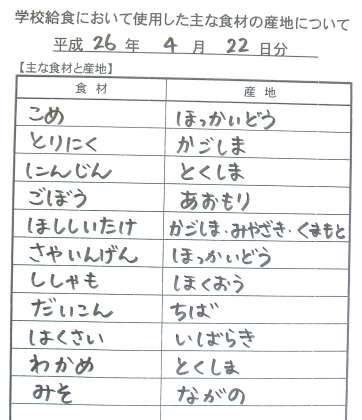 学校給食において使用した主な食材の産地について
平成 26 年 4 月 22 日分
【主な食材と産地】
食材 産地
こめ ほっかいどう
とりにく かごしま
にんじん とくしま
ごぼう あおもり
ほししいたけ かごしま・みやざき・くまもと
さやいんげん ほっかいどう
ししゃも ほくおう
だいこん ちば
はくさい いばらき
わかめ とくしま
みそ ながの